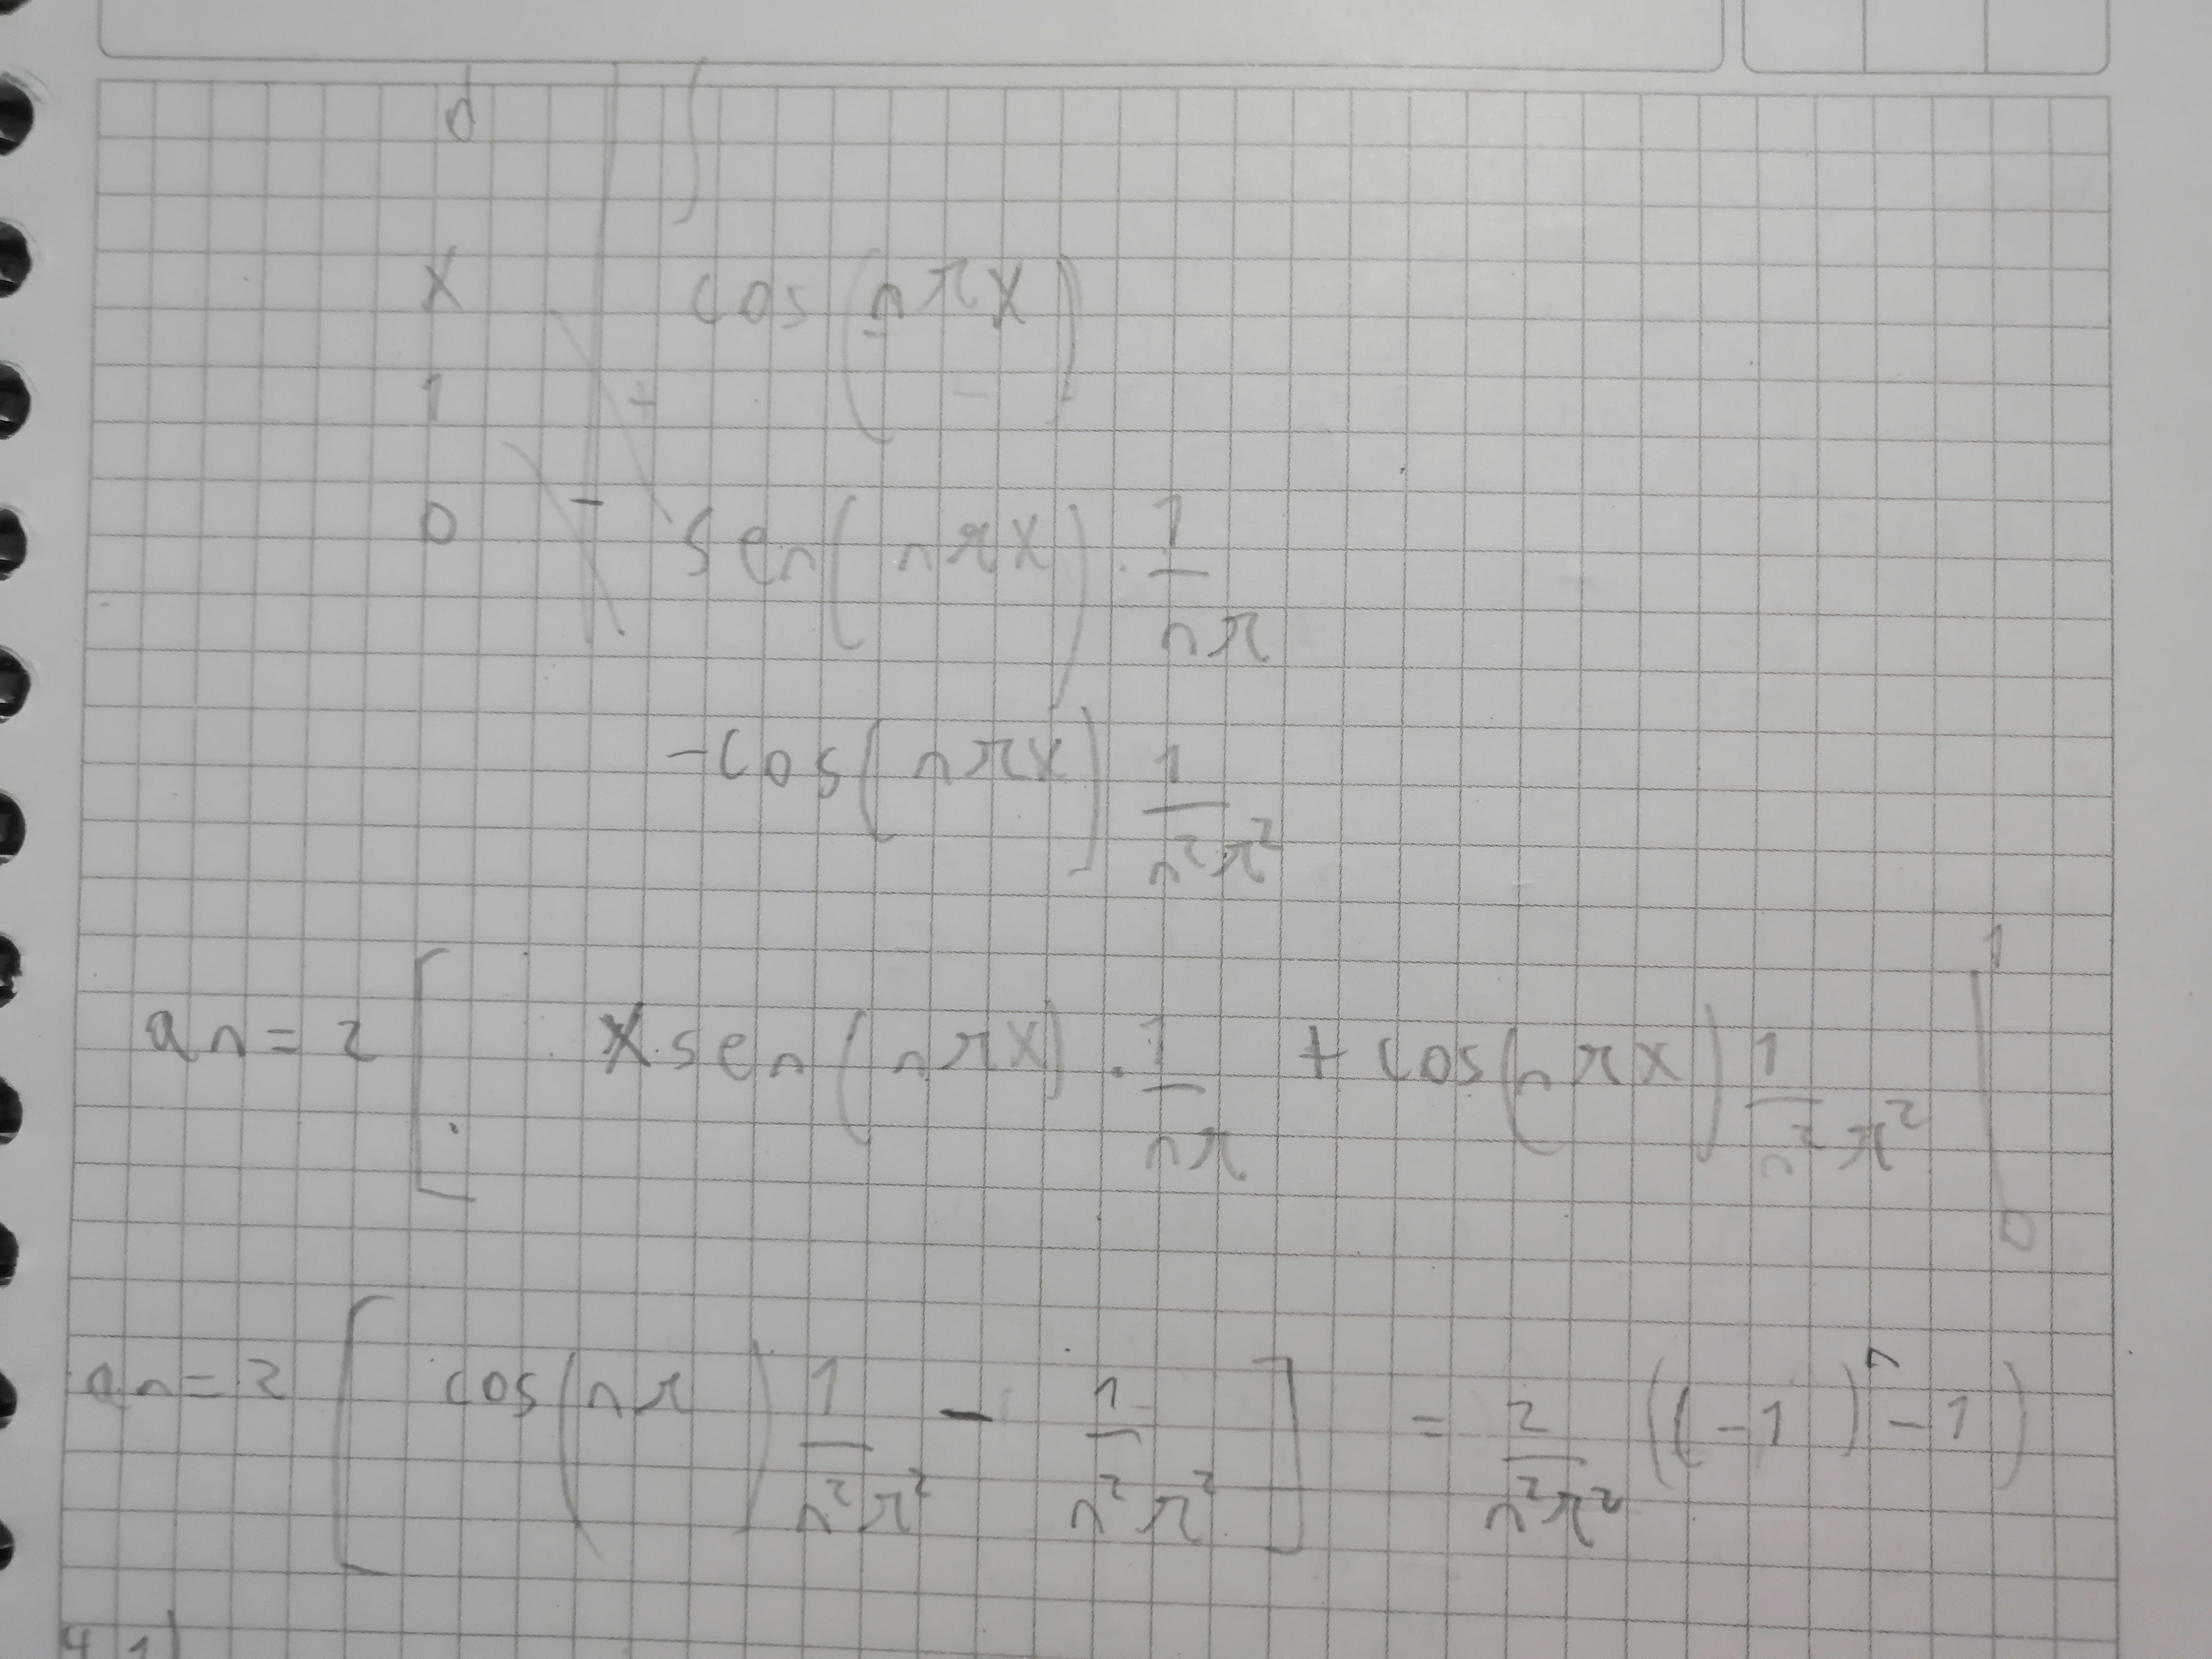 d ∫
x cos(nπx)
1 +
0 - sen(nπx) · 1/nπ
-cos(nπx) 1/n²π²
an = 2 [ x sen(nπx) · 1/nπ + cos(nπx) 1/n²π² |₀¹
an = 2 [ cos(nπ) 1/n²π² - 1/n²π² ] = 2/n²π² ((-1)ⁿ - 1)